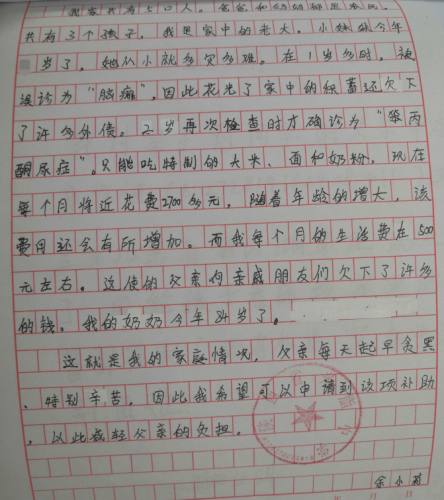 我家共有5口人。爸爸和奶奶都是农民。
共有3个孩子。我是家中的老大。小妹妹今年
岁了。她从小就多灾多难。在1岁多时，被
误诊为“脑瘫”，因此花光了家中的积蓄还欠下
了许多外债。2岁再次检查时才确诊为“苯丙
酮尿症”。只能吃特制的大米、面和奶粉。现在
每个月将近花费2700多元。随着年龄的增大，该
费用还会有所增加。而我每个月的生活费在500
元左右。这使的父亲向亲戚朋友们欠下了许多
的钱。我的奶奶今年84岁了。
这就是我的家庭情况，父亲每天起早贪黑
、特别辛苦。因此我希望可以申请到该项补助
，以此减轻父亲的负担。
余小